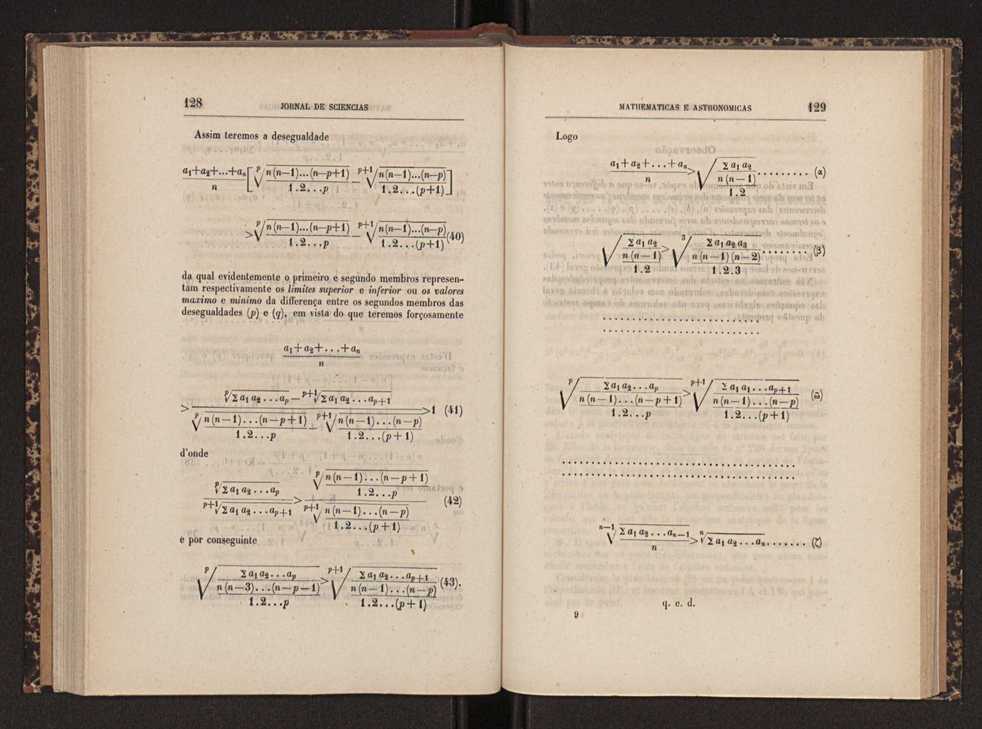 128
JORNAL DE SCIENCIAS
Assim teremos a desegualdade
a₁+a₂+...+aₙ / n [ ᵖ√( n(n−1)...(n−p+1) / 1.2...p ) − ᵖ⁺¹√( n(n−1)...(n−p) / 1.2...(p+1) ) ]
> ᵖ√( n(n−1)...(n−p+1) / 1.2...p ) − ᵖ⁺¹√( n(n−1)...(n−p) / 1.2...(p+1) ) (40)
da qual evidentemente o primeiro e segundo membros represen-
tam respectivamente os limites superior e inferior ou os valores
maximo e minimo da differença entre os segundos membros das
desegualdades (p) e (q), em vista do que teremos forçosamente
a₁+a₂+...+aₙ / n
> ( ᵖ√Σ a₁ a₂ ... aₚ − ᵖ⁺¹√Σ a₁ a₂ ... aₚ₊₁ ) / ( ᵖ√( n(n−1)...(n−p+1) / 1.2...p ) − ᵖ⁺¹√( n(n−1)...(n−p) / 1.2...(p+1) ) ) > 1 (41)
d'onde
ᵖ√Σ a₁ a₂ ... aₚ / ᵖ⁺¹√Σ a₁ a₂ ... aₚ₊₁ > ᵖ√( n(n−1)...(n−p+1) / 1.2...p ) / ᵖ⁺¹√( n(n−1)...(n−p) / 1.2...(p+1) ) (42)
e por conseguinte
ᵖ√( Σ a₁ a₂ ... aₚ / ( n(n−3)...(n−p−1) / 1.2...p ) ) > ᵖ⁺¹√( Σ a₁ a₂ ... aₚ₊₁ / ( n(n−1)...(n−p) / 1.2...(p+1) ) ) (43).
MATHEMATICAS E ASTRONOMICAS
129
Logo
a₁+a₂+...+aₙ / n > √( Σ a₁ a₂ / ( n(n−1) / 1.2 ) ) ......... (α)
√( Σ a₁ a₂ / ( n(n−1) / 1.2 ) ) > ³√( Σ a₁ a₂ a₃ / ( n(n−1)(n−2) / 1.2.3 ) ) ........ (β)
...........................
...........................
ᵖ√( Σ a₁ a₂ ... aₚ / ( n(n−1)...(n−p+1) / 1.2...p ) ) > ᵖ⁺¹√( Σ a₁ a₁ ... aₚ₊₁ / ( n(n−1)...(n−p) / 1.2...(p+1) ) )
........................................
........................................
ⁿ⁻¹√( Σ a₁ a₂ ... aₙ₋₁ / n ) > ⁿ√Σ a₁ a₂ ... aₙ ....... (ζ)
q. e. d.
9